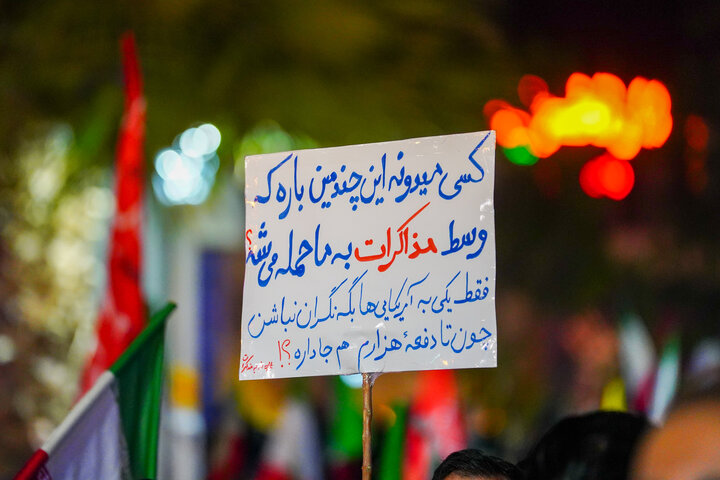 کسی میدونه این چندمین باره که
وسط مذاکرات به ما حمله می‌شه؟
فقط یکی به آمریکایی‌ها بگه نگران نباشن
چون تا دفعهٔ هزارم هم جا داره؟!